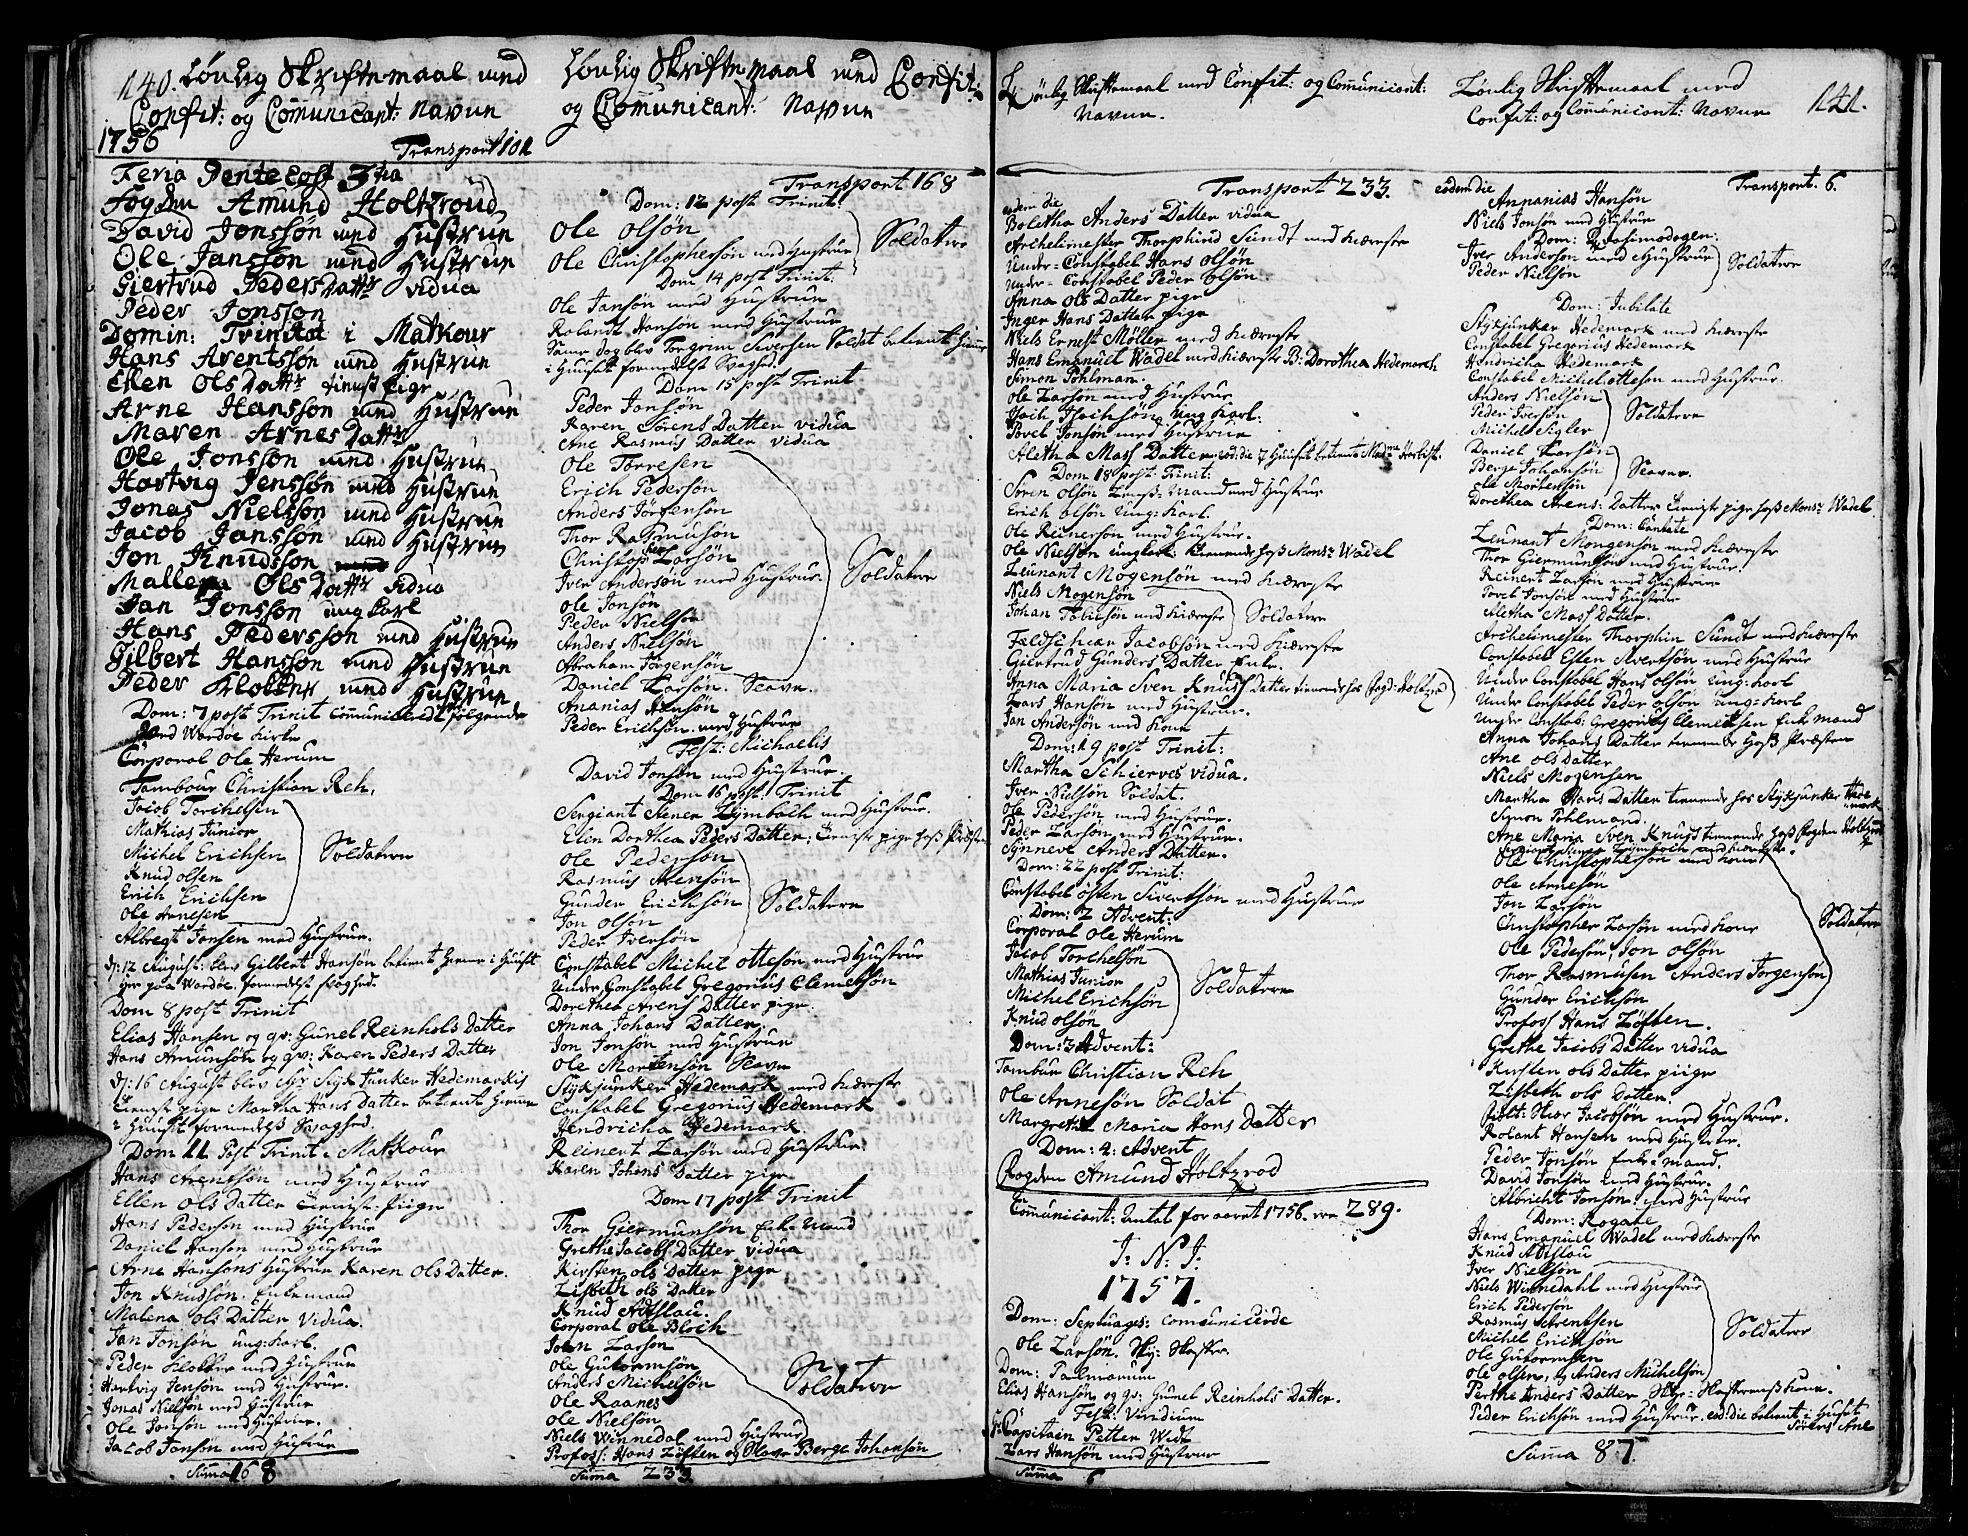 140. Lønlig Skriftemaal med
Confit: og Communicant: Navne
1756
Transport 101
Feria Pentecost 3tia
Fogden Amund Holtzroud
David Jonssøn med Hustrue
Ole Janssøn med Hustrue
Giertrud Peders Dattr vidua
Peder Jonsson
Domin: Trinitat i Makkour
Hans Arentsson med Hustrue
Ellen Ols Dattr tienist pige
Arne Hansson med Hustrue
Maren Arnes Dattr
Ole Jonsson med Hustrue
Hartvig Jensson med Hustrue
Jonas Nielsson med Hustrue
Jacob Jansson med Hustrue
Jon Knudsson
Mallena Ols Dattr vidua
Jan Jonsson ung karl
Hans Pedersson med Hustrue
Gilbert Hansson med Hustrue
Peder Klokker med Hustrue
Dom: 7 post Trinit Communicerede følgende
ved Wardøe kirke
Corporal Ole Herum
Tambour Christian Reh.
Jacob Torchelsen
Mathias Junior
Michel Erichsen
Knud olsen
Erich Erichsen
Ole Arnesen
Soldatere
Albregt Jonsen med Hustrue.
d: 12 August: blev Gilbert Hansøn betient hiemme i Huuset
her paa Wardøe formedelst svaghed.
Dom 8 post Trinit
Elias Hansen og qv: Gunel Reinhols Datter
Hans Amunsøn og qv: Karen Peders Datter
d: 16 August blev Sr Stykjunker Hedemarkis
tienist pige Martha Hans Datter betient hiemme
i Huuset formedelst Svaghed.
Dom 11 Post Trinit i Makkour
Hans Arentsøn med Hustrue
Ellen ols Datter tienist-Piige
Hans Pedersøn med Hustrue
Daniel Hanson med Hustrue
Arne Hansons Hustrue Karen ols Datter.
Jon Knudsøn. Enkemand
Malena ols Datter Vidua.
Jan Jonsøn ung:karl.
Peder Klokker med Hustrue
Hartvig Jensøn med Hustrue.
Jonas Nielsøn med Hustrue
Ole Jonsøn med Hustrue.
Jacob Jonsøn med Hustrue
Summa 168
Lønlig Skriftemaal med Confit:
og Communicant: Navne
Transport 168
Dom: 12 post Trinit:
Ole olsøn
Ole Christophersøn med Hustrue
Soldatere
Dom 14 post Trinit:
Ole Jansøn med Hustrue
Rolandt Hansøn med Hustrue
Samme dag blev Torgrim Siversen Soldat betient hiemme
i Huuset formedelst Svaghed.
Dom 15 post Trinit
Peder Jonsøn
Karen Sørens Datter vidua
Ane Rasmus Datter vidua
Ole Torresen
Erich Pedersøn
Anders Jørgensøn
Thor Rasmuson
Christopher Larsøn
Iver Andersøn med Hustrue.
Ole Jonsøn
Peder Nielsøn
Anders Nielsøn
Abraham Jørgensøn
Soldatere
Daniel Larsøn. Slave.
Ananias Hansøn
Peder Erichsøn med Hustrue
Fest: Michaelis
David Jonsøn med Hustrue.
Dom 16 post: Trinit
Sergiant Stener Lymbach med Hustrue.
Elen Dorthea Peders Datter, tienist pige hoss Præsten
Ole Pedersøn
Rasmus Arensøn
Gunder Erichsøn
Jon olsøn
Peder Iversøn
Soldatere
Constabel Michel ottesøn med Hustrue
Under Constabel Gregorius Clemetsøn
Dorethea Arens Datter pige.
Anna Johans Datter.
Jon Jonsøn med Hustrue
Ole Mortensøn Slave
Stykjunker Hedemark med kiereste
Constabel Gregorius Hedemark
Hendricha Hedemark.
Reinert Larsøn med Hustrue.
Karen Johans Datter pige
Dom 17 post Trinit
Thor Giermunsøn Enke Mand
Grethe Jacobs Datter vidua
Kirsten ols Datter pige
Lisbeth ols Datter
Knud Adslau.
Corporal ole Bloch
John Larson
Ole Gutormsøn
Anders Michelsøn
Ole Raanes
Ole Nielsøn
Niels Winnedal med Hustrue
Soldatere
Profoss: Hans Løften og Slave Berge Johansøn
Summa 233
Lønlig Skriftemaal med Confit: og Communicant:
Navne.
Transport 233.
eodem die
Bolitha Anders Datter vidua
Archelimester Thorphind Sundt med kiereste
Under-Constabel Hans olsøn
Under-Constabel Peder olsøn
Anna ols Datter pige
Inger Hans Datter pige
Niels Ernest Møller med kiereste
Hans Emanuel Wadel med kiereste B: Dorothea Hedemarch
Simon Pohlman.
Ole Larson med Hustrue
Isach Isachsøn ung karl.
Povel Jonsøn med Hustrue
Aletha Mass Datter
Dom 18 post: Trinit:
Soren olsøn Enke-Mand med Hustrue
Erich olsøn Ung-karl.
Ole Reinerson med Hustrue.
Ole Nielsøn ungkarl: tienende hoss Monsr Wadel
Leunant Mogensøn med kiereste
Niels Mogensøn
Johan Tobiesøn med kiereste
Soldatere
Feldschiær Jacobsøn med kiereste
Giertrud Gunders Datter Enke.
Anna Maria Sven Knuss Datter tienende hos Fogd: Holtzrod
Lars Hansøn med Hustrue.
Jan Andersøn med kone
Dom: 19 post Trinit:
Martha Schierves vidua.
Iver Nielsøn Soldat.
Ole Pedersøn med Hustrue.
Peder Larsøn med Hustrue.
Synneve Anders Datter.
Dom: 22 post Trinit:
Constabel østen Sivertsøn med Hustrue
Dom: 2 Advent:
Corporal ole Herum
Jacob Torchelsøn
Mathias Junior
Michel Erichsøn
Knud olsøn
Soldatere
Dom: 3 Advent:
Tambur Christian Reh
Ole Annesøn Soldat
Margrethe Maria Hans Datter
Dom: 4: Advent
Fogden Amund Holtzrod
Communicant: Antal for aaret 1756. ere 289.
I: N: J:
1757.
Dom: Septuages: Comunicerede
Ole Larsøn.
Dom: Palmarum
Elias Hansøn og qv: Gunel Reinhols Datter.
Fest: Viridium
Sr Capitain Petter Widt
Lars Hansøn med Hustrue
Summa 6
Lønlig Skriftemaal med
Confit: og Communicant: Navne
141.
Transport. 6.
eodem die
Annanias Hansøn
Niels Jonsøn med Hustrue
Dom: Qvasimodogen:
Iver Anderson med Hustrue
Peder Nielsøn
Soldatere
Dom: Jubilate
Stykjunker Hedemark med kiereste
Constabel Gregorius Hedemark
Hendricha Hedemark
Constabel Michel otteson med Hustrue
Anders Nielsøn
Peder Iversøn
Michel Sigler
Soldatere
Daniel Larsøn
Berge Johansøn
Ole Mortensøn
Slaver.
Dorethea Arens: Datter tienist pige hoss Monsr Wadel
Dom: Cantate
Leunant Mongensøn med kiereste
Thor Giermunsøn med Hustrue
Reinert Larsøn med Hustrue
Povel Jonsøn med Hustrue
Aletha Mass Datter.
Archelimester Thorphin Sundt med kiereste
Constabel Esten Sivertsøn med Hustrue
Under Constabel Hans olsøn Ung:karl
Under Constabel Peder olsøn Ung:karl
Under Constab: Gregorius Clemetsen Enkemand
Anna Johans Datter tienende hoss Præsten
Ane ols Datter
Niels Mogensen
Martha Hans Datter tienende hos Stykjunker Hedemark
Symon Pohlmand.
Ane Maria Sven Knuss tienende hoss Fogden Holtzrod
Sergiant Stener Lymbach med kiereste.
Ole Christophersøn med kone
Ole Arnesøn
Jon Larsøn
Christopher Larsøn med kone
Ole Pedersøn, Jon olsøn
Thor Rasmusen Anders Jørgensøn
Gunder Erichsøn
Soldatere
Profoss Hans Løften.
Grethe Jacobs Datter vidua
Kirsten ols Datter piige
Lisbeth ols Datter.
Felt: Skier Jacobsøn med Hustrue.
Rolant Hansen med Hustrue.
Peder Jonsøn Enke mand.
David Jonsøn med Hustrue.
Albricht Jonsøn med Hustrue
Dom: Rogate
Hans Emanuel Wadel med kiereste
Knud Adslau
Iver Nielsøn
Niels Winnedahl med Hustrue
Erich Pedersøn
Rasmus Arentsen
Michel Erichsøn
Ole Gutormsen
Ole olsen, og Anders Michelsøn
Soldatere
Perthe Anders Datter
Peder Erichsøn med Hustrue. eod: die betient i Huset
Sørens Ane
Summa 87.